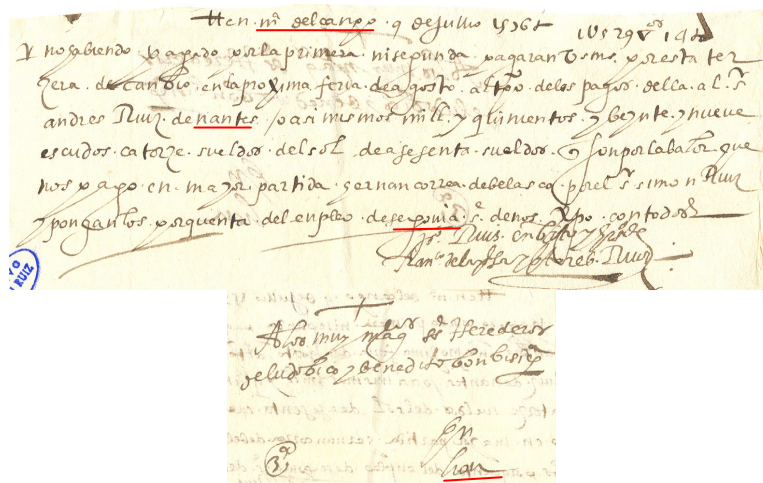 + en m° del canpo 9 de Jullio 1576 1U529 14
no abiendo pagado por la primera ni segunda pagaran Vs ms por esta ter
zera de canbio en la proxima feria de agosto al tpo de los pagos della al sr
andres Ruiz de nantes o a si mismos mill y quinientos y beynte y nueve
escudos catorze sueldos del sol de a sesenta sueldos y son por la balor que
nos pago en mayor partida hernan correa de belasco por el sr simon Ruiz
y ponganlos por quenta del enpleo de segovia de nos xpo con todos
Ruis enbito y
Franco de la y Ruiz
A los muy magcos ss herederos
de ludobico y benedito bonbisi
en
lion
3a
RUIZ